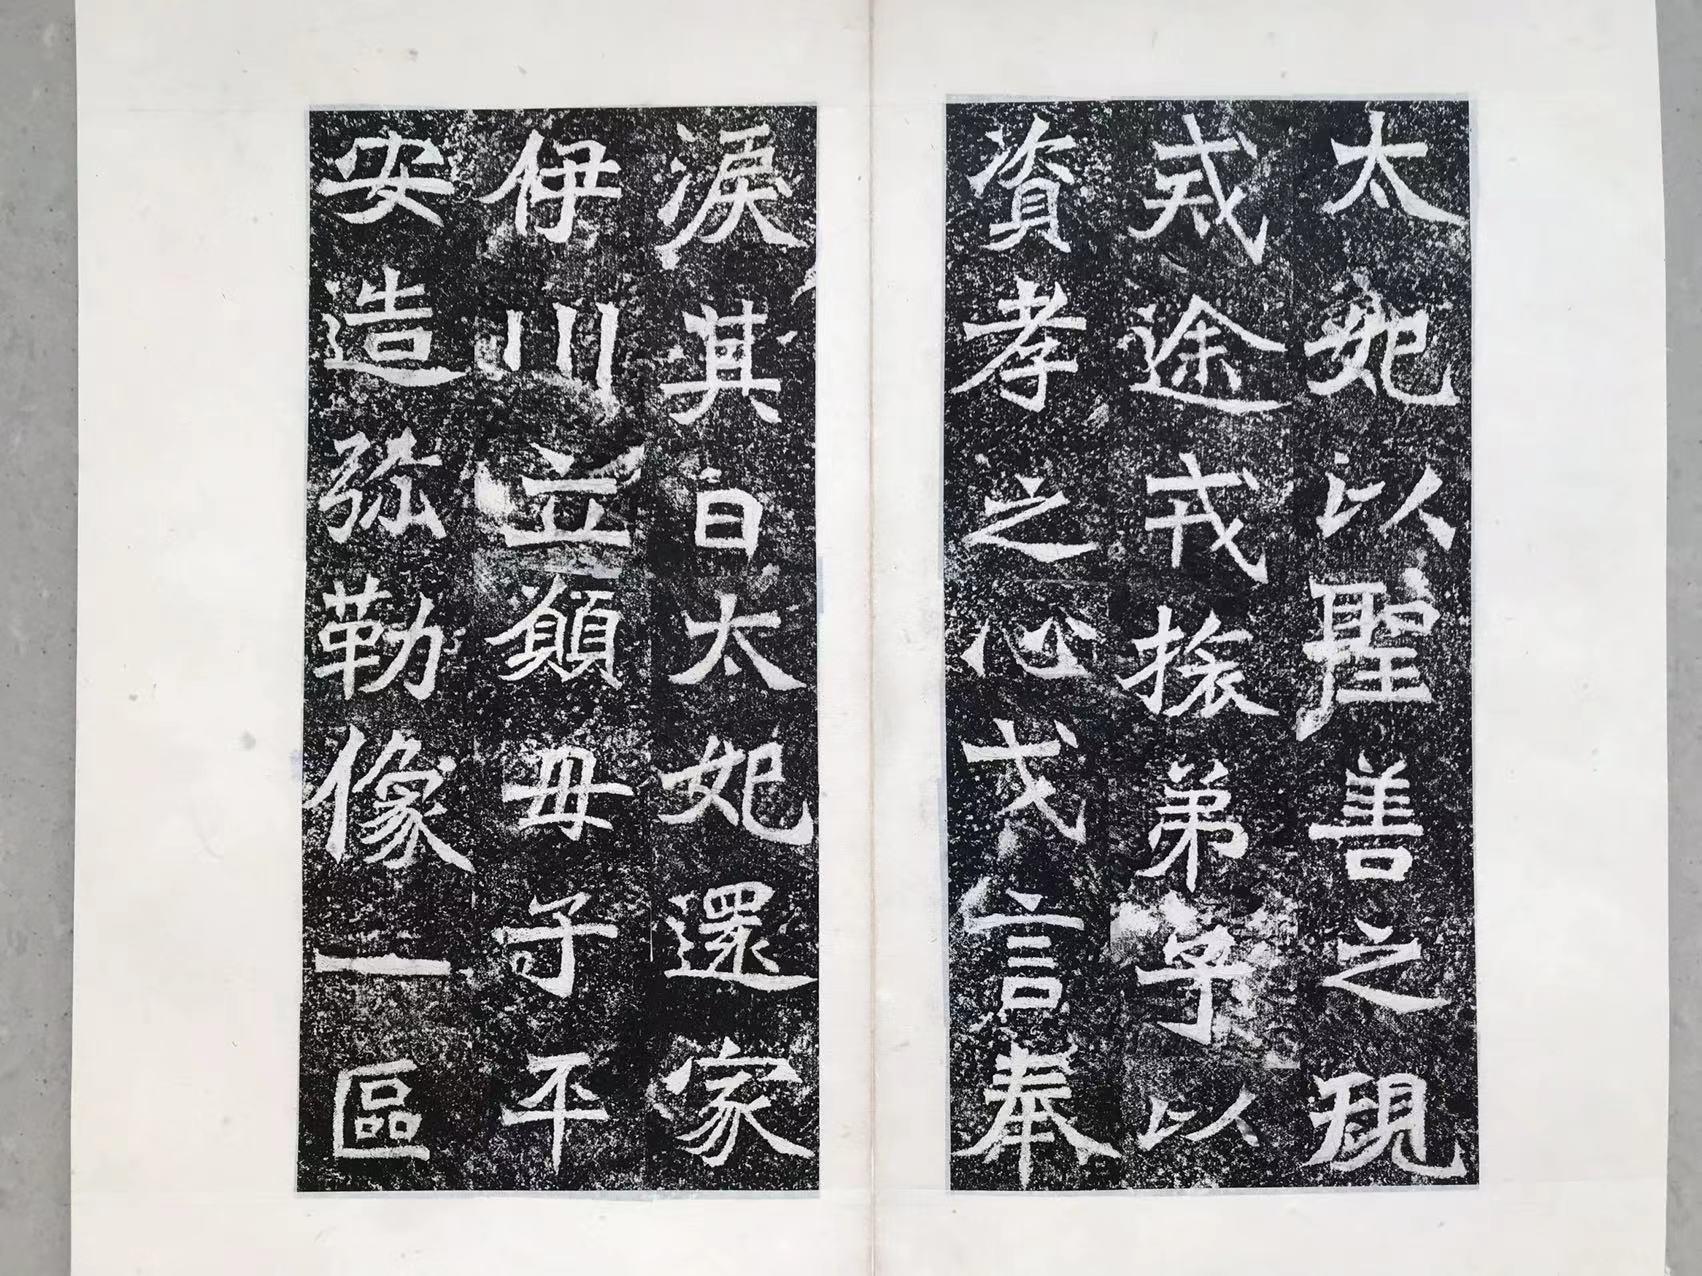 太妃以聖善之規
戒途戒振弟子以
資孝之心戈言奉
淚其日太妃還家
伊川立願母子平
安造弥勒像一區